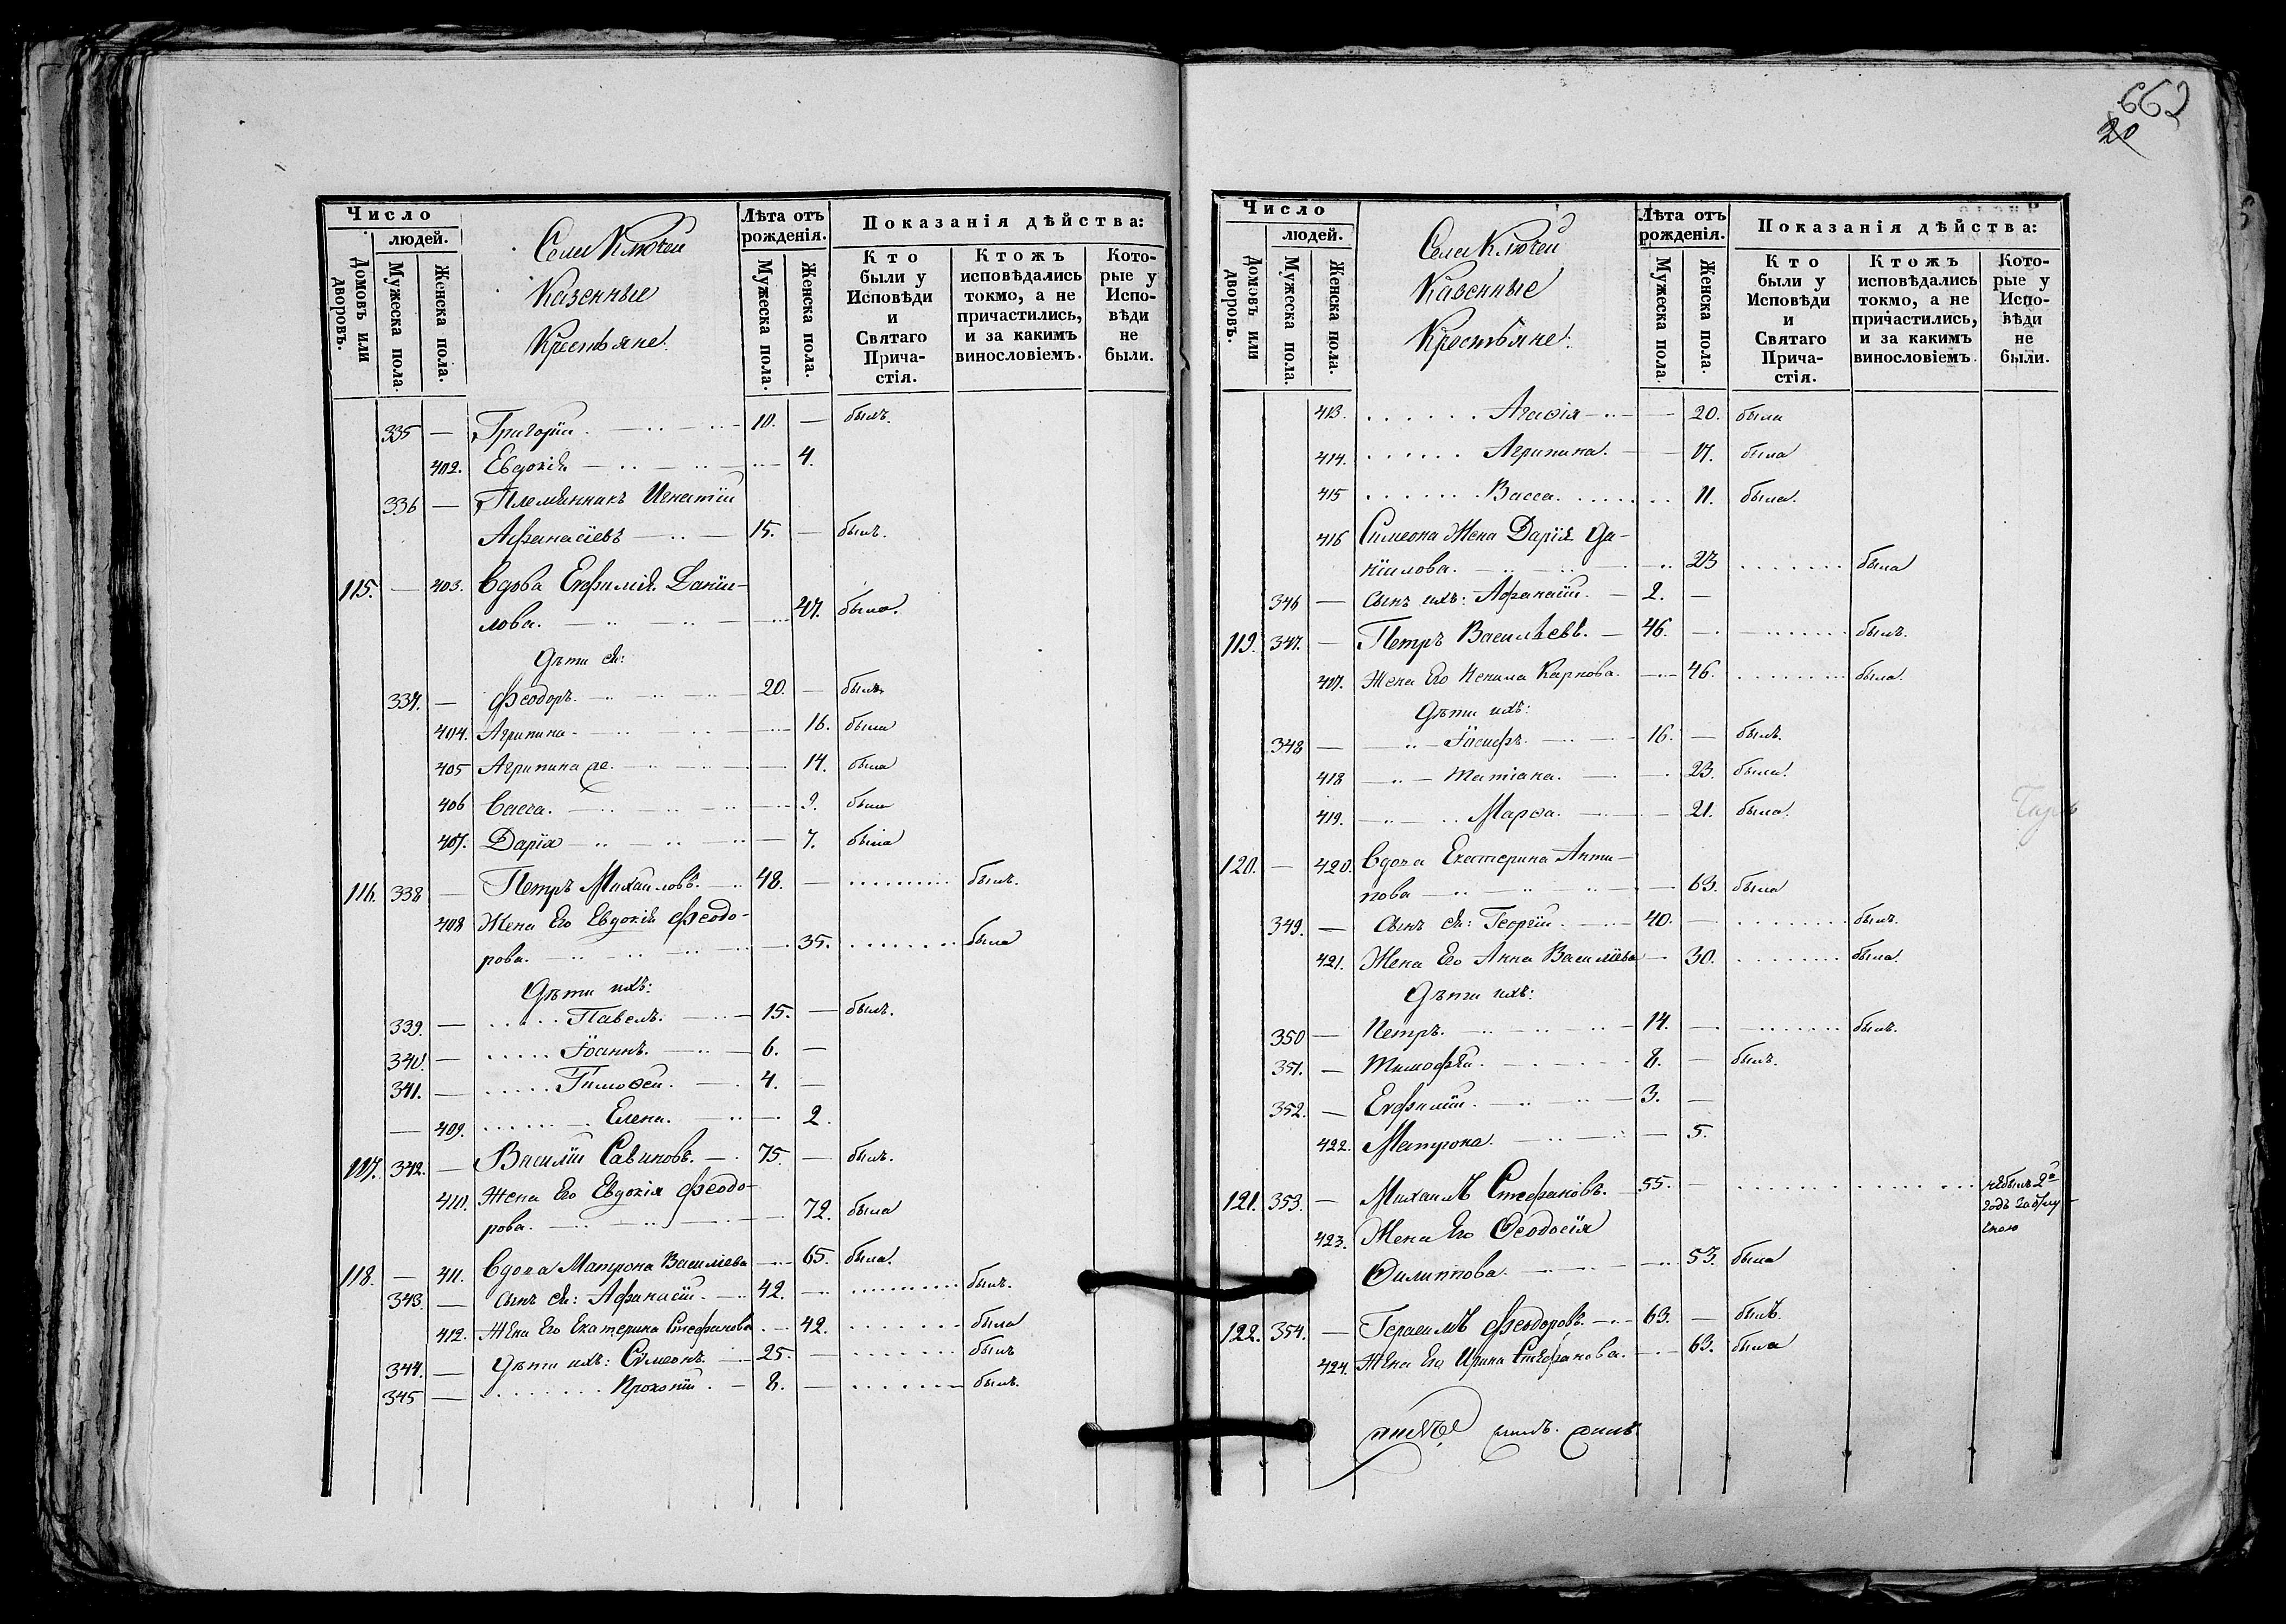 662
20
Число
людей.
Домовъ или дворовъ.
Мужеска пола.
Женска пола.
Села Ключей
Казенные
Крестьяне:
Лѣта отъ рожденія.
Мужеска пола.
Женска пола.
Показанія дѣйства:
Кто были у Исповѣди и Святаго Прича-стія.
Ктожъ исповѣдались токмо, а не причастились, и за какимъ винословіемъ.
Кото-рые у Испо-вѣди не были.
335 — Григорій. 10. — былъ.
402. Евдокія 4.
336 — Племянникъ Игнатій
Афанасіевъ 15. — былъ.
115. — 403. Вдова Евфимія Даніи-
лова. 47. была.
Дѣти ея:
337. — Феодоръ. 20. — былъ
404. Агрипина 16. была
405 Агрипина же. 14. была
406 Васса. 9. была
407. Дарія 7. была
116. 338 — Петръ Михаиловъ. 48. — былъ.
408 Жена Его Евдокія Феодо-
рова. 35. была
Дѣти ихъ:
339. — Павелъ. 15. — былъ.
340. — Іоаннъ. 6. —
341. — Тимоѳей. 4. —
— 409. Елена. 2.
117. 342. — Василій Савиновъ. 75. — былъ.
410. Жена Его Евдокія Феодо-
рова. 72. была
118. — 411. Вдова Матрона Василіева 65. была.
343. — Сынъ ея: Афанасій. 42. — былъ.
412. Жена Его Екатерина Стефанова 42. была
344. — Дѣти ихъ: Симеонъ. 25. — былъ
345 — Прокопій. 8. — былъ.
Число
людей.
Домовъ или дворовъ.
Мужеска пола.
Женска пола.
Села Ключей
Казенные
Крестьяне:
Лѣта отъ рожденія.
Мужеска пола.
Женска пола.
Показанія дѣйства:
Кто были у Исповѣди и Святаго Прича-стія.
Ктожъ исповѣдались токмо, а не причастились, и за какимъ винословіемъ.
Кото-рые у Испо-вѣди не были.
413. Агаѳія 20. была
414. Агрипина. 17. была
415 Васса. 11. была.
416 Симеона Жена Дарія Да-
ніилова. 23 была
346 — Сынъ ихъ: Афанасій. 2. —
119. 347. — Петръ Васильевъ. 46. — былъ.
417. Жена Его Ненила Карпова. 46. была.
Дѣти ихъ:
348 — Іосифъ. 16. — былъ.
418 Татіана. 23. была.
419. Марѳа. 21. была.
120. — 420. Вдова Екатерина Анти-
пова 63. была
349. — Сынъ ея: Георгій. 40. — былъ.
421. Жена Его Анна Василіева 30. была.
Дѣти ихъ:
350 — Петръ. 14. — былъ.
351. — Тимофѣй. 8. — былъ.
352. — Евфимій. 3. —
422. Матрона. 5.
121. 353. — Михаилъ Стефановъ. 55. — не былъ 2й
годъ за отлу-
чкою
423. Жена Его Ѳеодосія
Филиппова. 53. была
122. 354. — Герасимъ Феодоровъ. 63. — былъ.
424. Жена Его Ирина Стефанова. 63. была